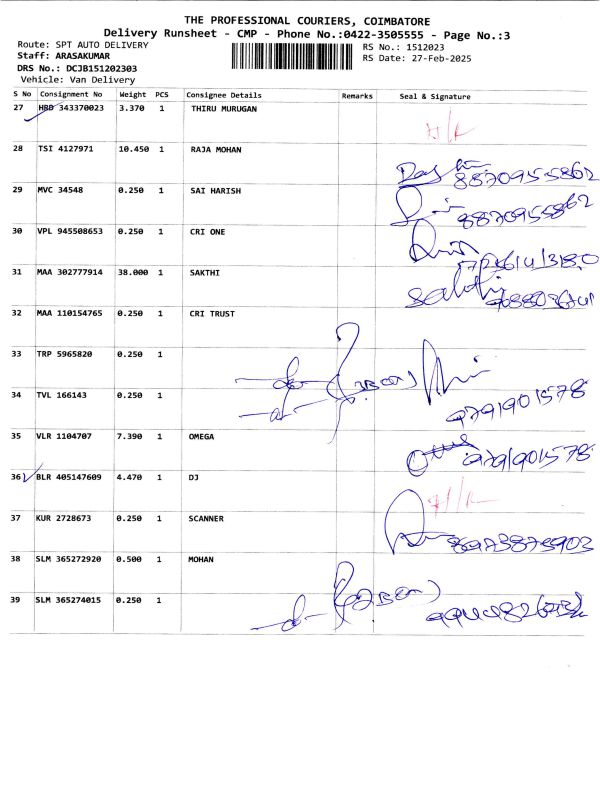 THE PROFESSIONAL COURIERS, COIMBATORE
Delivery Runsheet - CMP - Phone No.:0422-3505555 - Page No.:3
Route: SPT AUTO DELIVERY
RS No.: 1512023
Staff: ARASAKUMAR
RS Date: 27-Feb-2025
DRS No.: DCJB151202303
Vehicle: Van Delivery
S No Consignment No Weight PCS Consignee Details Remarks Seal & Signature
27 HRD 343370023 3.370 1 THIRU MURUGAN
28 TSI 4127971 10.450 1 RAJA MOHAN
8870955862
29 MVC 34548 0.250 1 SAI HARISH
8870955862
30 VPL 945508653 0.250 1 CRI ONE
31 MAA 302777914 38.000 1 SAKTHI
32 MAA 110154765 0.250 1 CRI TRUST
33 TRP 5965820 0.250 1
34 TVL 166143 0.250 1
9791901578
35 VLR 1104707 7.390 1 OMEGA
9791901578
36 BLR 405147609 4.470 1 DJ
37 KUR 2728673 0.250 1 SCANNER
8973875903
38 SLM 365272920 0.500 1 MOHAN
39 SLM 365274015 0.250 1